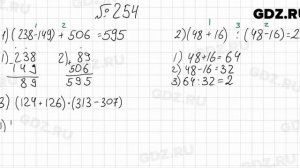 № 254
1) (238-149) + 506 = 595
1) 238
149
89
2) 89
506
595
2) (48+16) : (48-16) = 2
1) 48+16=64
2) 48-16=32
3) 64:32=2
3) (124+126)·(313-307)
GDZ.RU